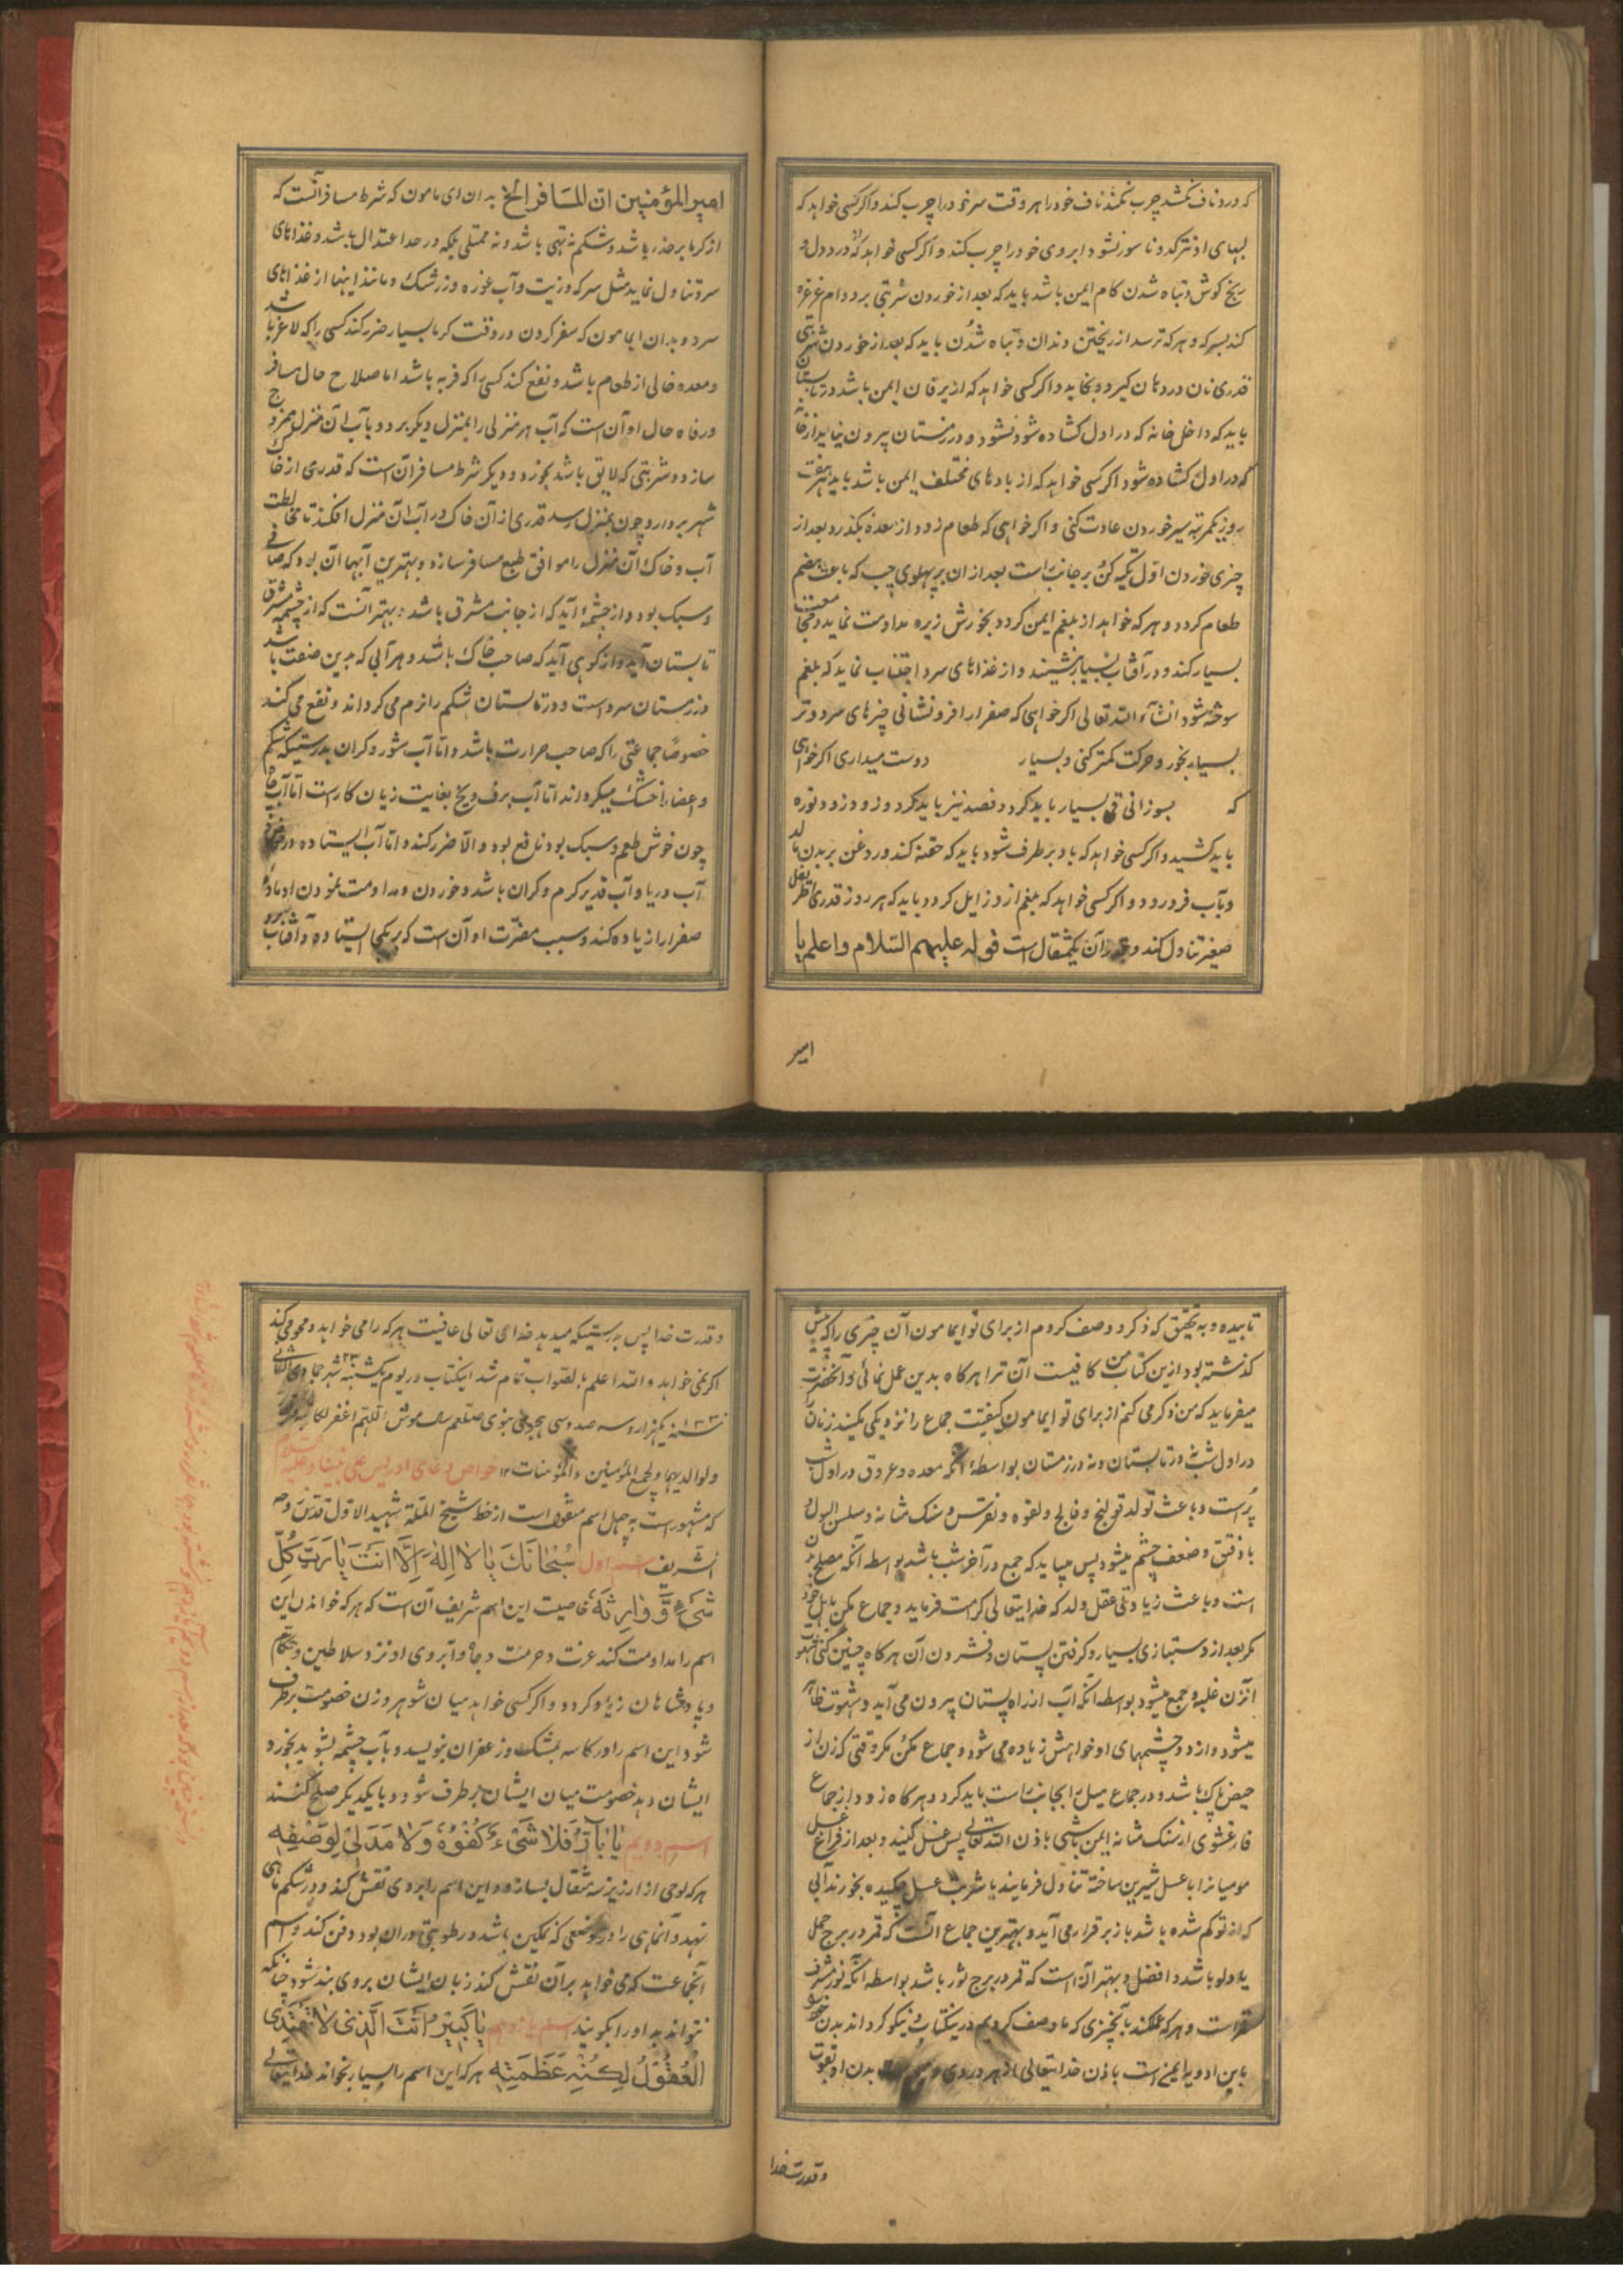 که درد ناف نکشد چرب نکند ناف خود را هر وقت سر خود را چرب کند و اگر کسی خواهد که
لبهای او نترکد و ناسور نشود ابروی خود را چرب کند و اگر کسی خواهد که از درد دل و
رنج گوش و تباه شدن کام ایمن باشد باید که بعد از خوردن شربتی بر دوام غرغره
کند بسرکه و هر که ترسد از ریختن دندان و تباه شدن باید که بعد از خوردن شیرینی
قدری نان در دهان گیرد و بخاید و اگر کسی خواهد که از یرقان ایمن باشد در تابستان
باید که داخل خانه که در اول گشاده شود نشود و در زمستان بیرون نیاید از خانه
که در اول گشاده شود اگر کسی خواهد که از بادهای مختلف ایمن باشد باید هر هفت
روز یکمرتبه سیر خوردن عادت کنی و اگر خواهی که طعام زود از معده بگذرد بعد از
چیزی خوردن اول تکیه کن بر جانب راست بعد از ان بر پهلوی چپ که باعث هضم
طعام گردد و هر که خواهد از بلغم ایمن گردد بخورش زیره مداومت نماید و مجامعت
بسیار کند و در آفتاب بسیار بنشیند و از غذاهای سرد اجتناب نماید که بلغم
سوخته شود انشآء الله تعالی اگر خواهی که صفرا را فرو نشانی چیزهای سرد و تر
بسیار بخور و حرکت کمتر کنی و بسیار دوست میداری اگر خواهی
که بسوزانی قی بسیار باید کرد و فصد نیز باید کرد و زود زود نوره
باید کشید و اگر کسی خواهد که باد بر طرف شود باید که حقنه کند و روغن بر بدن مالد
و بآب فرو رود و اگر کسی خواهد که بلغم از و زایل گردد باید که هر روز قدری اطریفل
صغیر تناول کند و قدر آن یکمثقال است قوله علیهم السلام واعلم یا
امیر
امیر المؤمنین ان للمسافر الخ بدان ای مامون که شرط مسافر آنست که
از گرما بر حذر باشد و شکم نه تهی باشد و نه ممتلی بلکه در حد اعتدال باشد و غذاهای
سرد تناول نماید مثل سرکه و زیت و آب غوره و زرشک و مانند اینها از غذاهای
سرد و بدان ایمامون که سفر کردن در وقت گرما بسیار ضرر کند کسی را که لاغر باشد
و معده خالی از طعام باشد و نفع کند کسی را که فربه باشد اما صلاح حال مسافر
و رفاه حال او آن است که آب هر منزلی را بمنزل دیگر برد و بآب آن منزل ممزوج
سازد و شربتی که لایق باشد بخورد و دیگر شرط مسافر آن است که قدری از خاک
شهر بردارد و چون بمنزل رسد قدری از آن خاک در آب آن منزل افکند تا مخالطت
آب و خاک آن منزل را موافق طبع مسافر سازد و بهترین آبها آن بود که صافی
و سبک بود و از چشمهٔ آید که از جانب مشرق باشد و بهتر آنست که از چشمه مشرق
تابستان آید و از کوهی آید که صاحب خاک باشد و هر آبی که بدین صفت باشد
در زمستان سرد است و در تابستان شکم را نرم می گرداند و نفع می کند
خصوصًا جماعتی را که صاحب حرارت باشد و اما آب شور و گران بدرستیکه شکم
و اعضا را خشک میگرداند اما آب برف و یخ بغایت زیان کار است اما آب چاه
چون خوش طعم و سبک بود نافع بود و الا ضرر کند و اما آب ایستاده در حوض و
آب دریا و آب قدیر گرم و گران باشد و خوردن و مداومت نمودن او مادهٔ
صفرا را زیاده کند و سبب مضرّت او آن است که بر یکجا ایستاده و آفتاب برو
تابیده و به تحقیق که ذکر و وصف کردم از برای تو ایمامون آن چیزی را که پیش
گذشته بود ازین کتاب من کافیست آن ترا هرگاه بدین عمل نمائی و آنحضرت
میفرماید که من ذکر می کنم از برای تو ایمامون کیفیت جماع را نزدیکی مکنید زنان
در اول شب نه در تابستان و نه در زمستان بواسطهٔ آنکه معده و عروق در اول شب
پُر است و باعث تولد قولنج و فالج و لقوه و نقرس و سنک مثانه و سلسل البول و
باد فتق و ضعف چشم میشود پس میباید که جمع در آخر شب باشد بواسطه آنکه مصلح بدن
است و باعث زیادتی عقل ولد که خدایتعالی کرامت فرماید و جماع مکن با اهل خود
مگر بعد از دستبازی بسیار و گرفتن پستان و فشردن آن هرگاه چنین کنی شهوت
آنزن غلبه و جمع میشود بواسطه آنکه آب از راه پستان بیرون می آید و شهوت ظاهر
میشود و از دو چشمهای او خواهش زیاده می شود و جماع مکن مگر وقتی که زن از
حیض پاک باشد و در جماع میل را بجانب راست باید کرد و هرگاه زود از جماع
فارغ شوی از سنک مثانه ایمن باشی باذن الله تعالی پس غسل کنید و بعد از فراغ غسل
مومیا را با عسل شیرین ساخته تناول فرمایند یا شربت عسل چکیده بخورند آبی
که از تو کم شده باشد باز برقرار می آید و بهترین جماع آنست که قمر در برج حمل
یا دلو باشد و افضل و بهتر آن است که قمر در برج ثور باشد بواسطه آنکه ثور شرف
قمر است و هر که عمل کند بآنچیزی که ما وصف کردیم درینکتاب و نیکو گرداند بدن خود
باین ادویه ایمن است باذن خدایتعالی از هر دردی بدن او بقوت
و قدرت خدا
و قدرت خدا پس بدرستیکه میدهد خدای تعالی عافیت هر که را می خواهد و محو می کند
اگر نمی خواهد و الله اعلم بالصواب تمام شد اینکتاب در یوم یکشنبه ۲۳ شهر جمادی الثانی
۱۳۳ سنه یکهزار و سه صد و سی هجری نبوی صلعم اللهم اغفر لکاتبها
ولوالدیهما ولجمیع المؤمنین والمؤمنات ۱۲ خواص دعای ادریس علی نبینا وعلیه السلام
که مشهور است به چهل اسم منقول است از خط شیخ الملّة شهید الاول قدس روحه
الشریف اسم اول سُبْحَانَكَ يَا لَا اِلٰهَ اِلَّا اَنْتَ يَا رَبَّ كُلِّ
شَیْءٍ وَّ وَارِثَهُ خاصیت این اسم شریف آن است که هر که خواندن این
اسم را مداومت کند عزت و حرمت و جاه و آبروی او نزد سلاطین و حکام
و پادشاهان زیاد گردد و اگر کسی خواهد میان شوهر و زن خصومت برطرف
شود این اسم را در کاسه بمشک و زعفران بنویسد و بآب چشمه بشوید بخورد
ایشان دهد خصومت میان ایشان برطرف شود و با یکدیگر صلح کنند
اسم دویم يَا بَارُّ فَلَا شَیْءَ كُفْوُهُ وَلَا مَدَانِیَ لِوَصْفِهِ
هر که لوحی از ارزیز سه مثقال بسازد و این اسم را بروی نقش کند و در شکم ماهی
نهد و آنماهی را در موضعی که نمکین باشد و رطوبتی در ان بود دفن کند و اسم
آنجماعت که می خواهد بر آن نقش کند زبان ایشان بروی بند شود چنانکه
نتوانند بد او را بگویند اسم یَا كَبِيْرُ اَنْتَ الَّذِی لَا تَهْتَدِی
الْعُقُوْلُ لِكُنْهِ عَظَمَتِهِ هر که این اسم را بسیار بخواند خدایتعالی